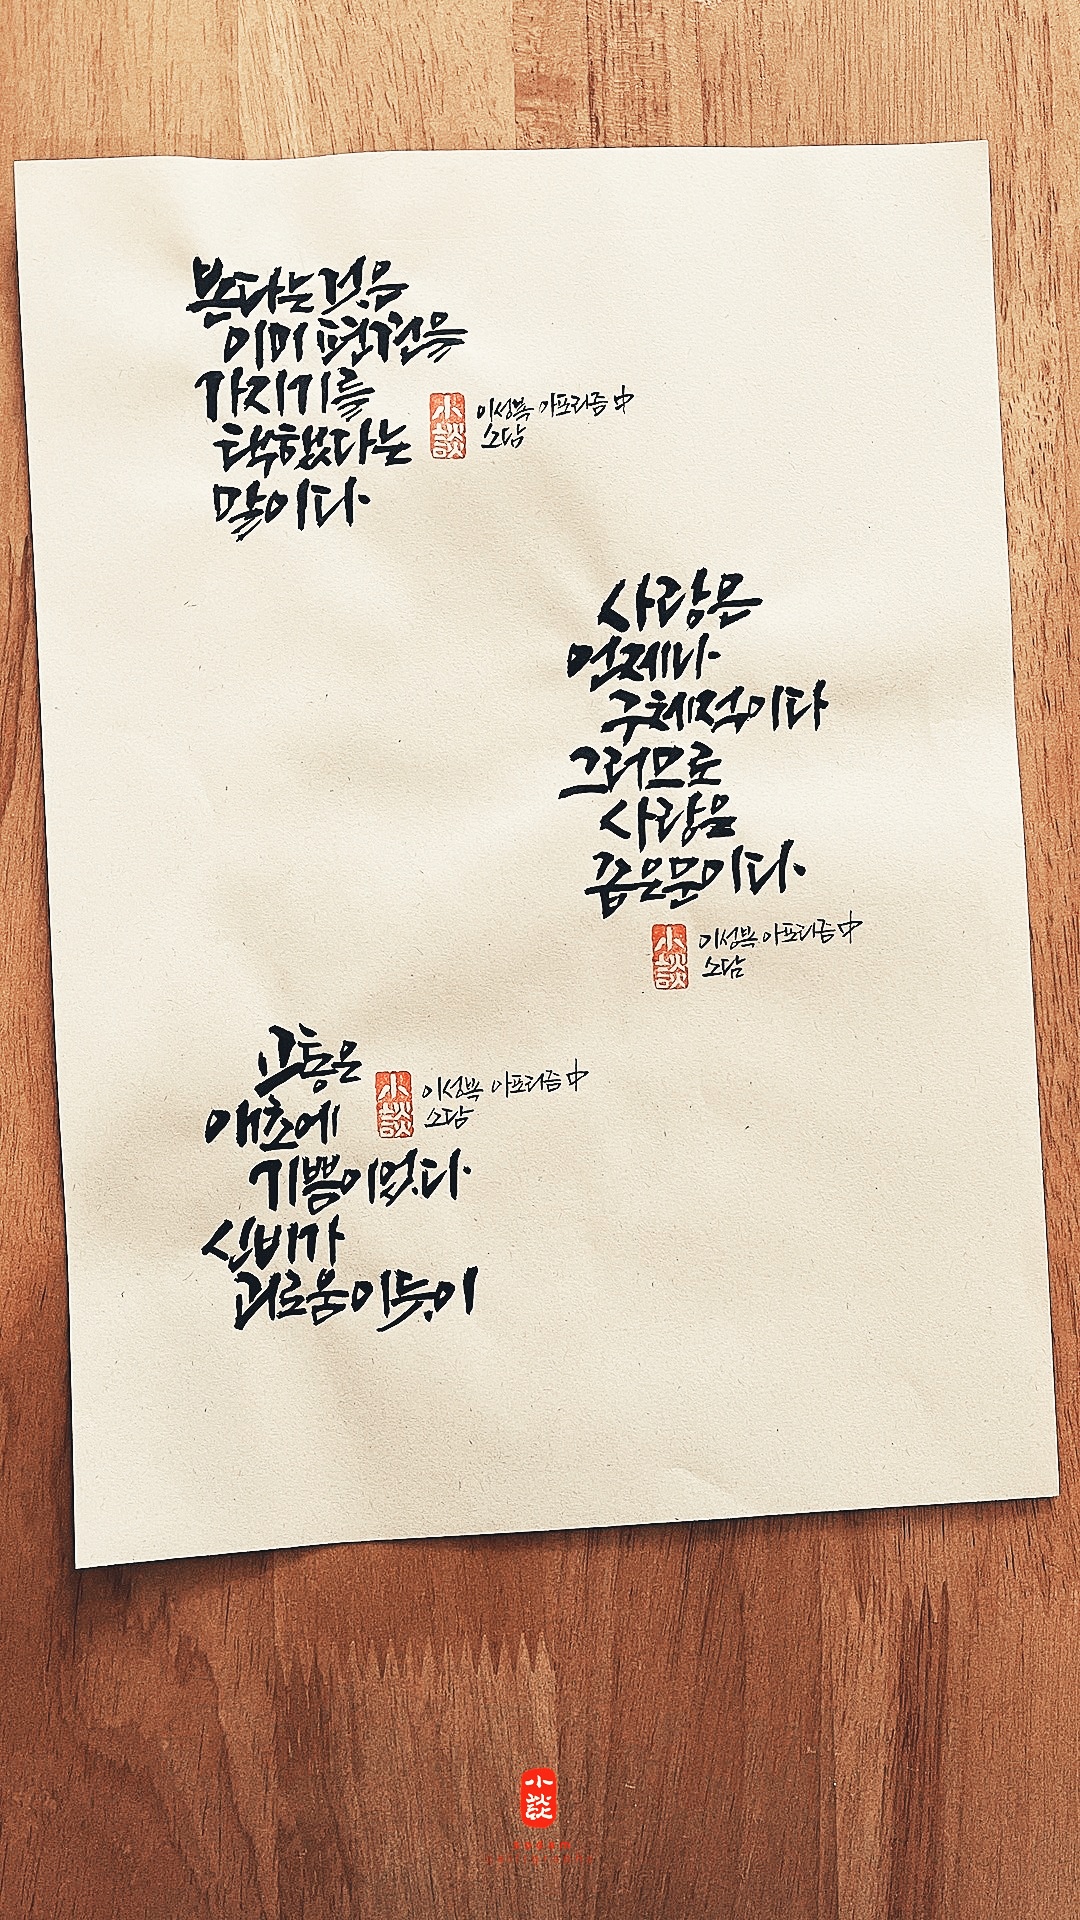 본다는것은
이미 편견을
가지기를
택했다는
말이다.
小談
이성복 아포리즘 中
소담
사랑은
언제나
구체적이다
그러므로
사랑은
좁은문이다.
小談
이성복 아포리즘 中
소담
고통은
애초에
기쁨이었다.
신비가
괴로움이듯이
小談
이성복 아포리즘 中
소담
小談